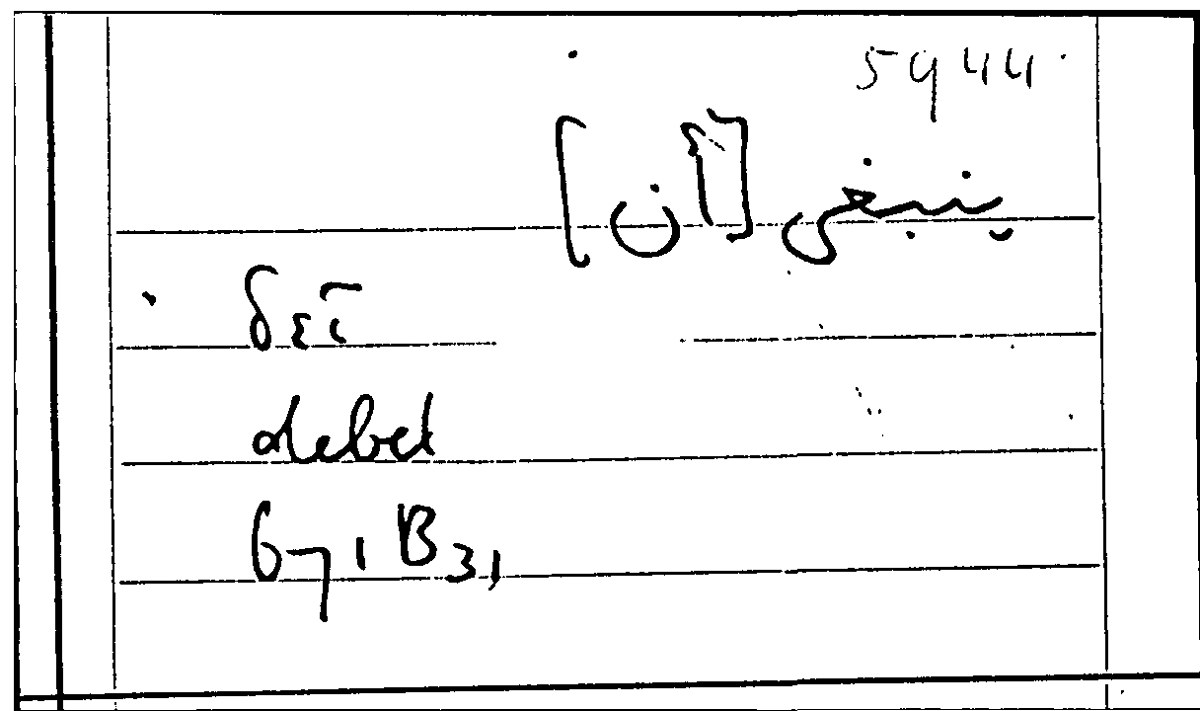 5944
ينبغي [أن]
δεῖ
debet
671 B 31